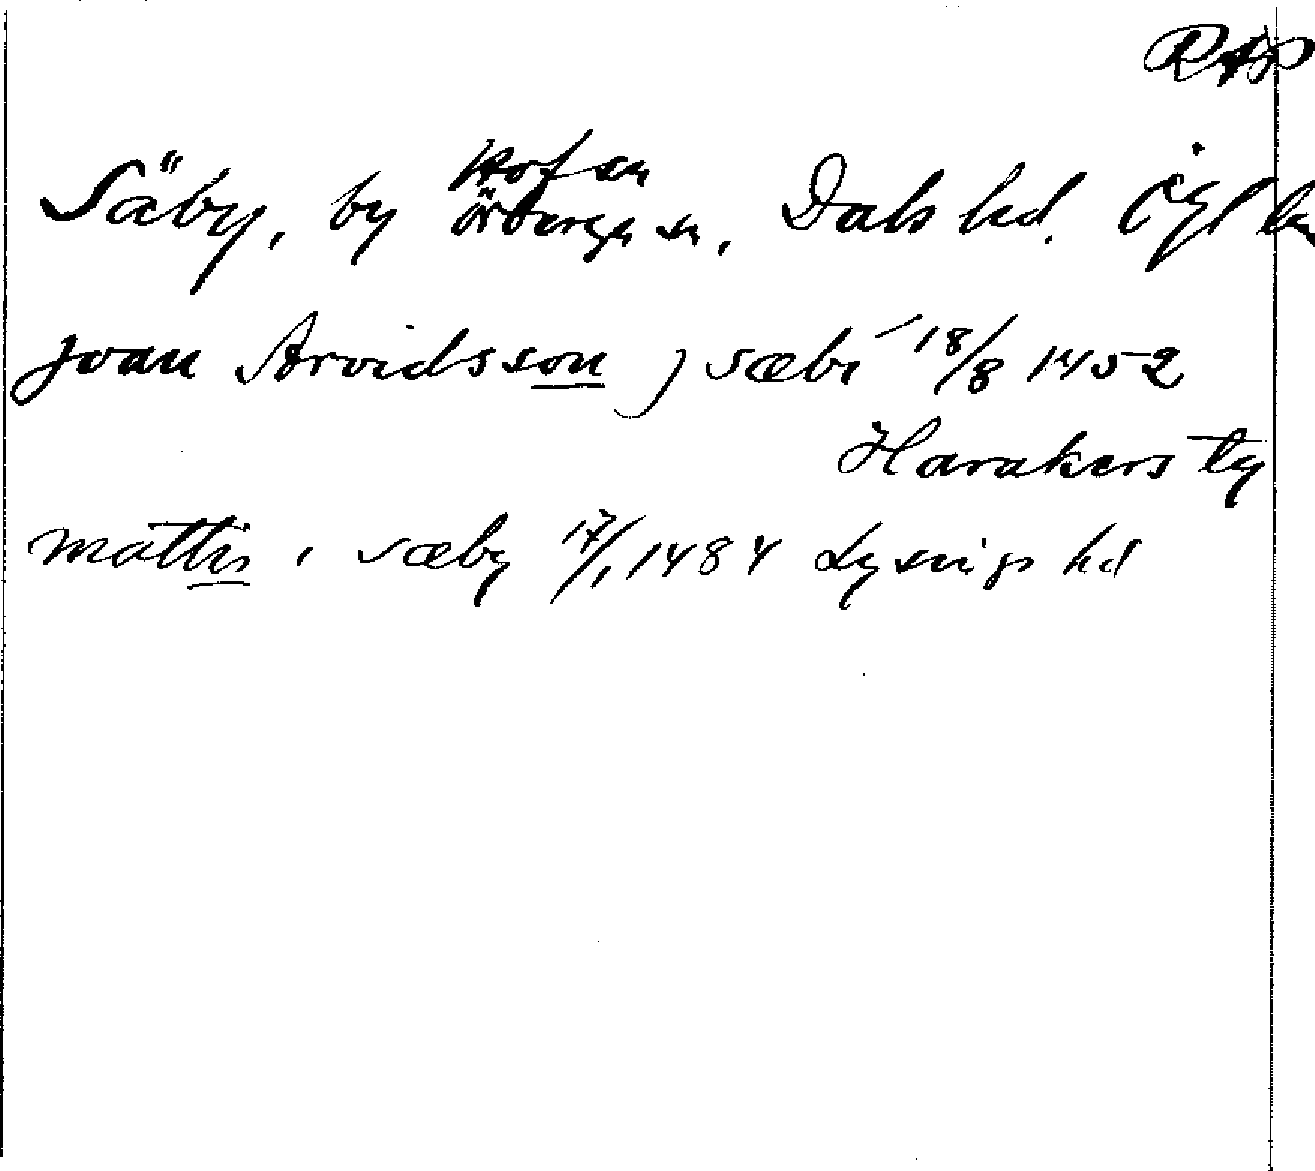 RAP
Hof sn
Säby, by Örberga sn, Dals hd. Ögl ln
Joan Arvidsson j sæbi 18/8 1452
Harakers tg
mattis i sæby 17/1 1484 Lysings hd